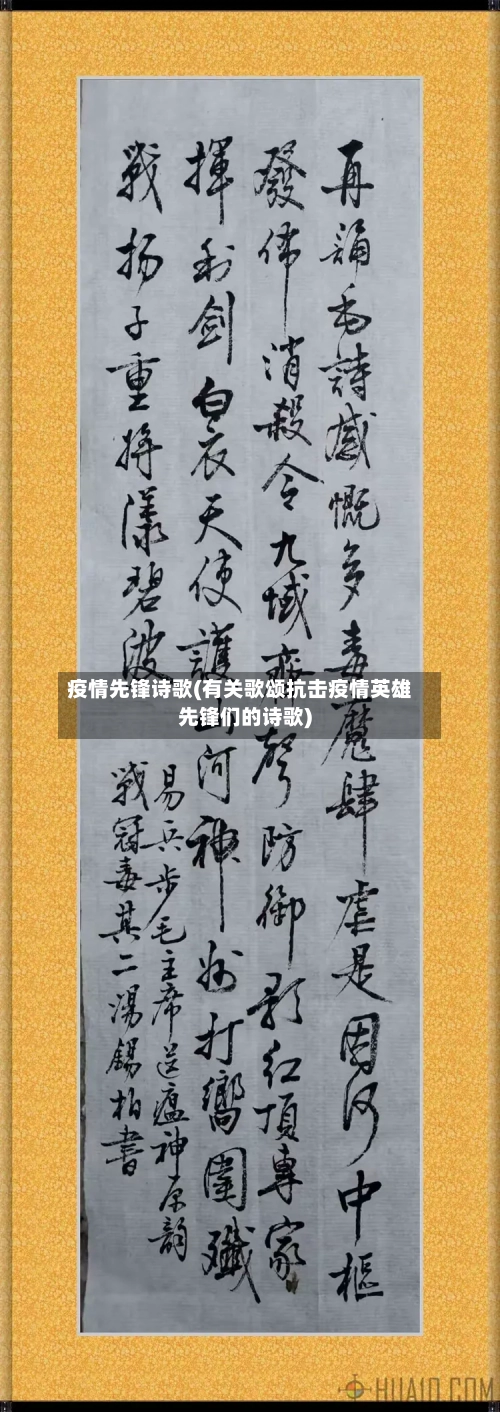 再誦毛詩感慨多毒魔肆虐是因何中樞
發佈消殺令九域齊聲防御歌红頂專家
揮利劍白衣天使護山河神州打嚮圍殲
戰扬子重將漾碧波
易兵步毛主席送瘟神原韵
戰冠毒其二湯錫柏書
疫情先锋诗歌(有关歌颂抗击疫情英雄
先锋们的诗歌)
HUA10.COM